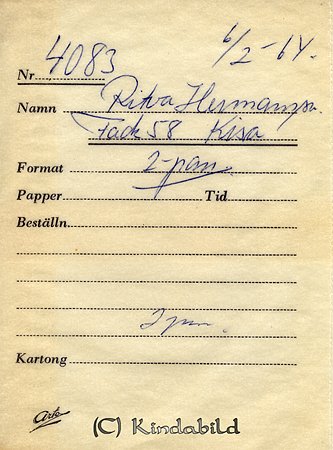 6/2-64.
Nr 4083
Namn Ritva Hermansson
Fack 58 Kisa
Format 2-pan
Papper Tid
Beställn.
Kartong
Ark
(C) Kindabild